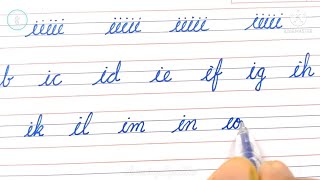 iiiii iiiii iiiii iiiii
b ic id ie if ig ih
ik il im in io